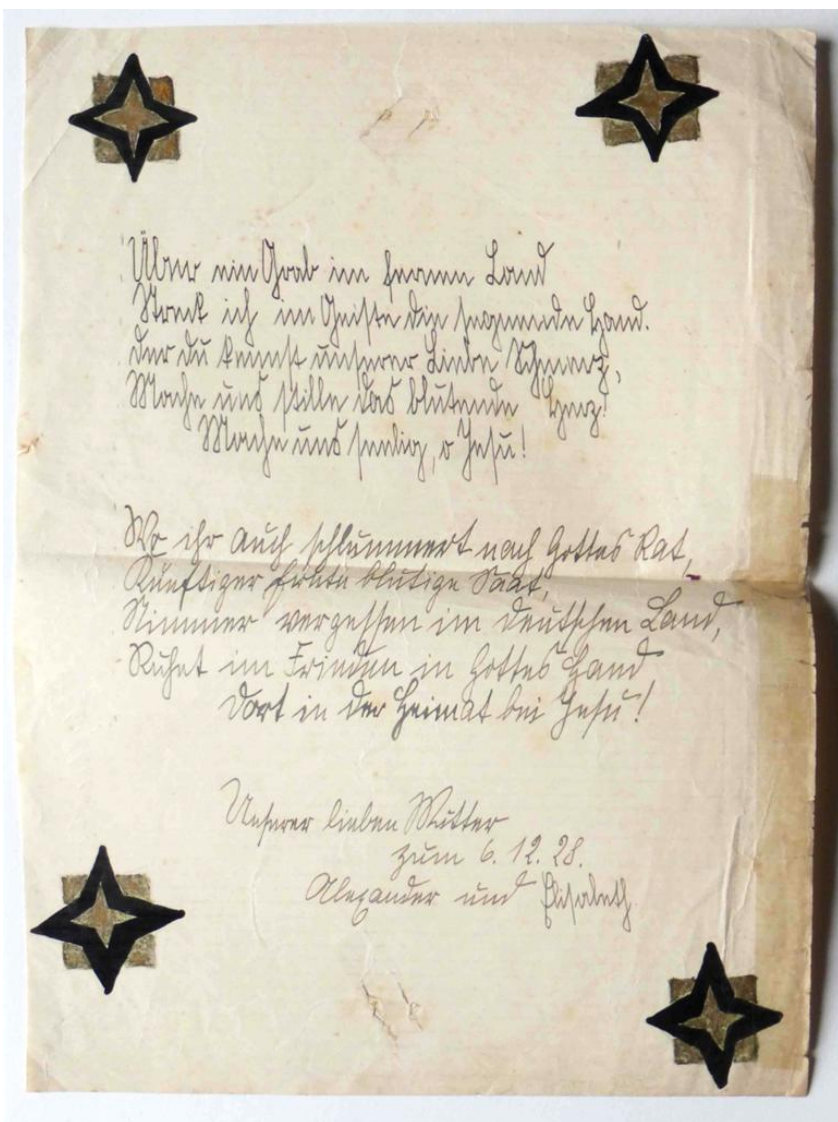 Über ein Grab im fernen Land
Streck ich im Geiste die segnende Hand.
Der du kennst unserer Liebe Schmerz,
Mache uns stille das blutende Herz!
Mache uns seelig, o Jesu!
Wo ihr auch schlummert nach Gottes Rat,
Künftiger Ernte blutige Saat,
Nimmer vergessen im deutschen Land,
Ruhet im Frieden in Gottes Hand
Dort in der Heimat bei Jesu!
Unserer lieben Mutter
zum 6. 12. 28.
Alexander und Elisabeth